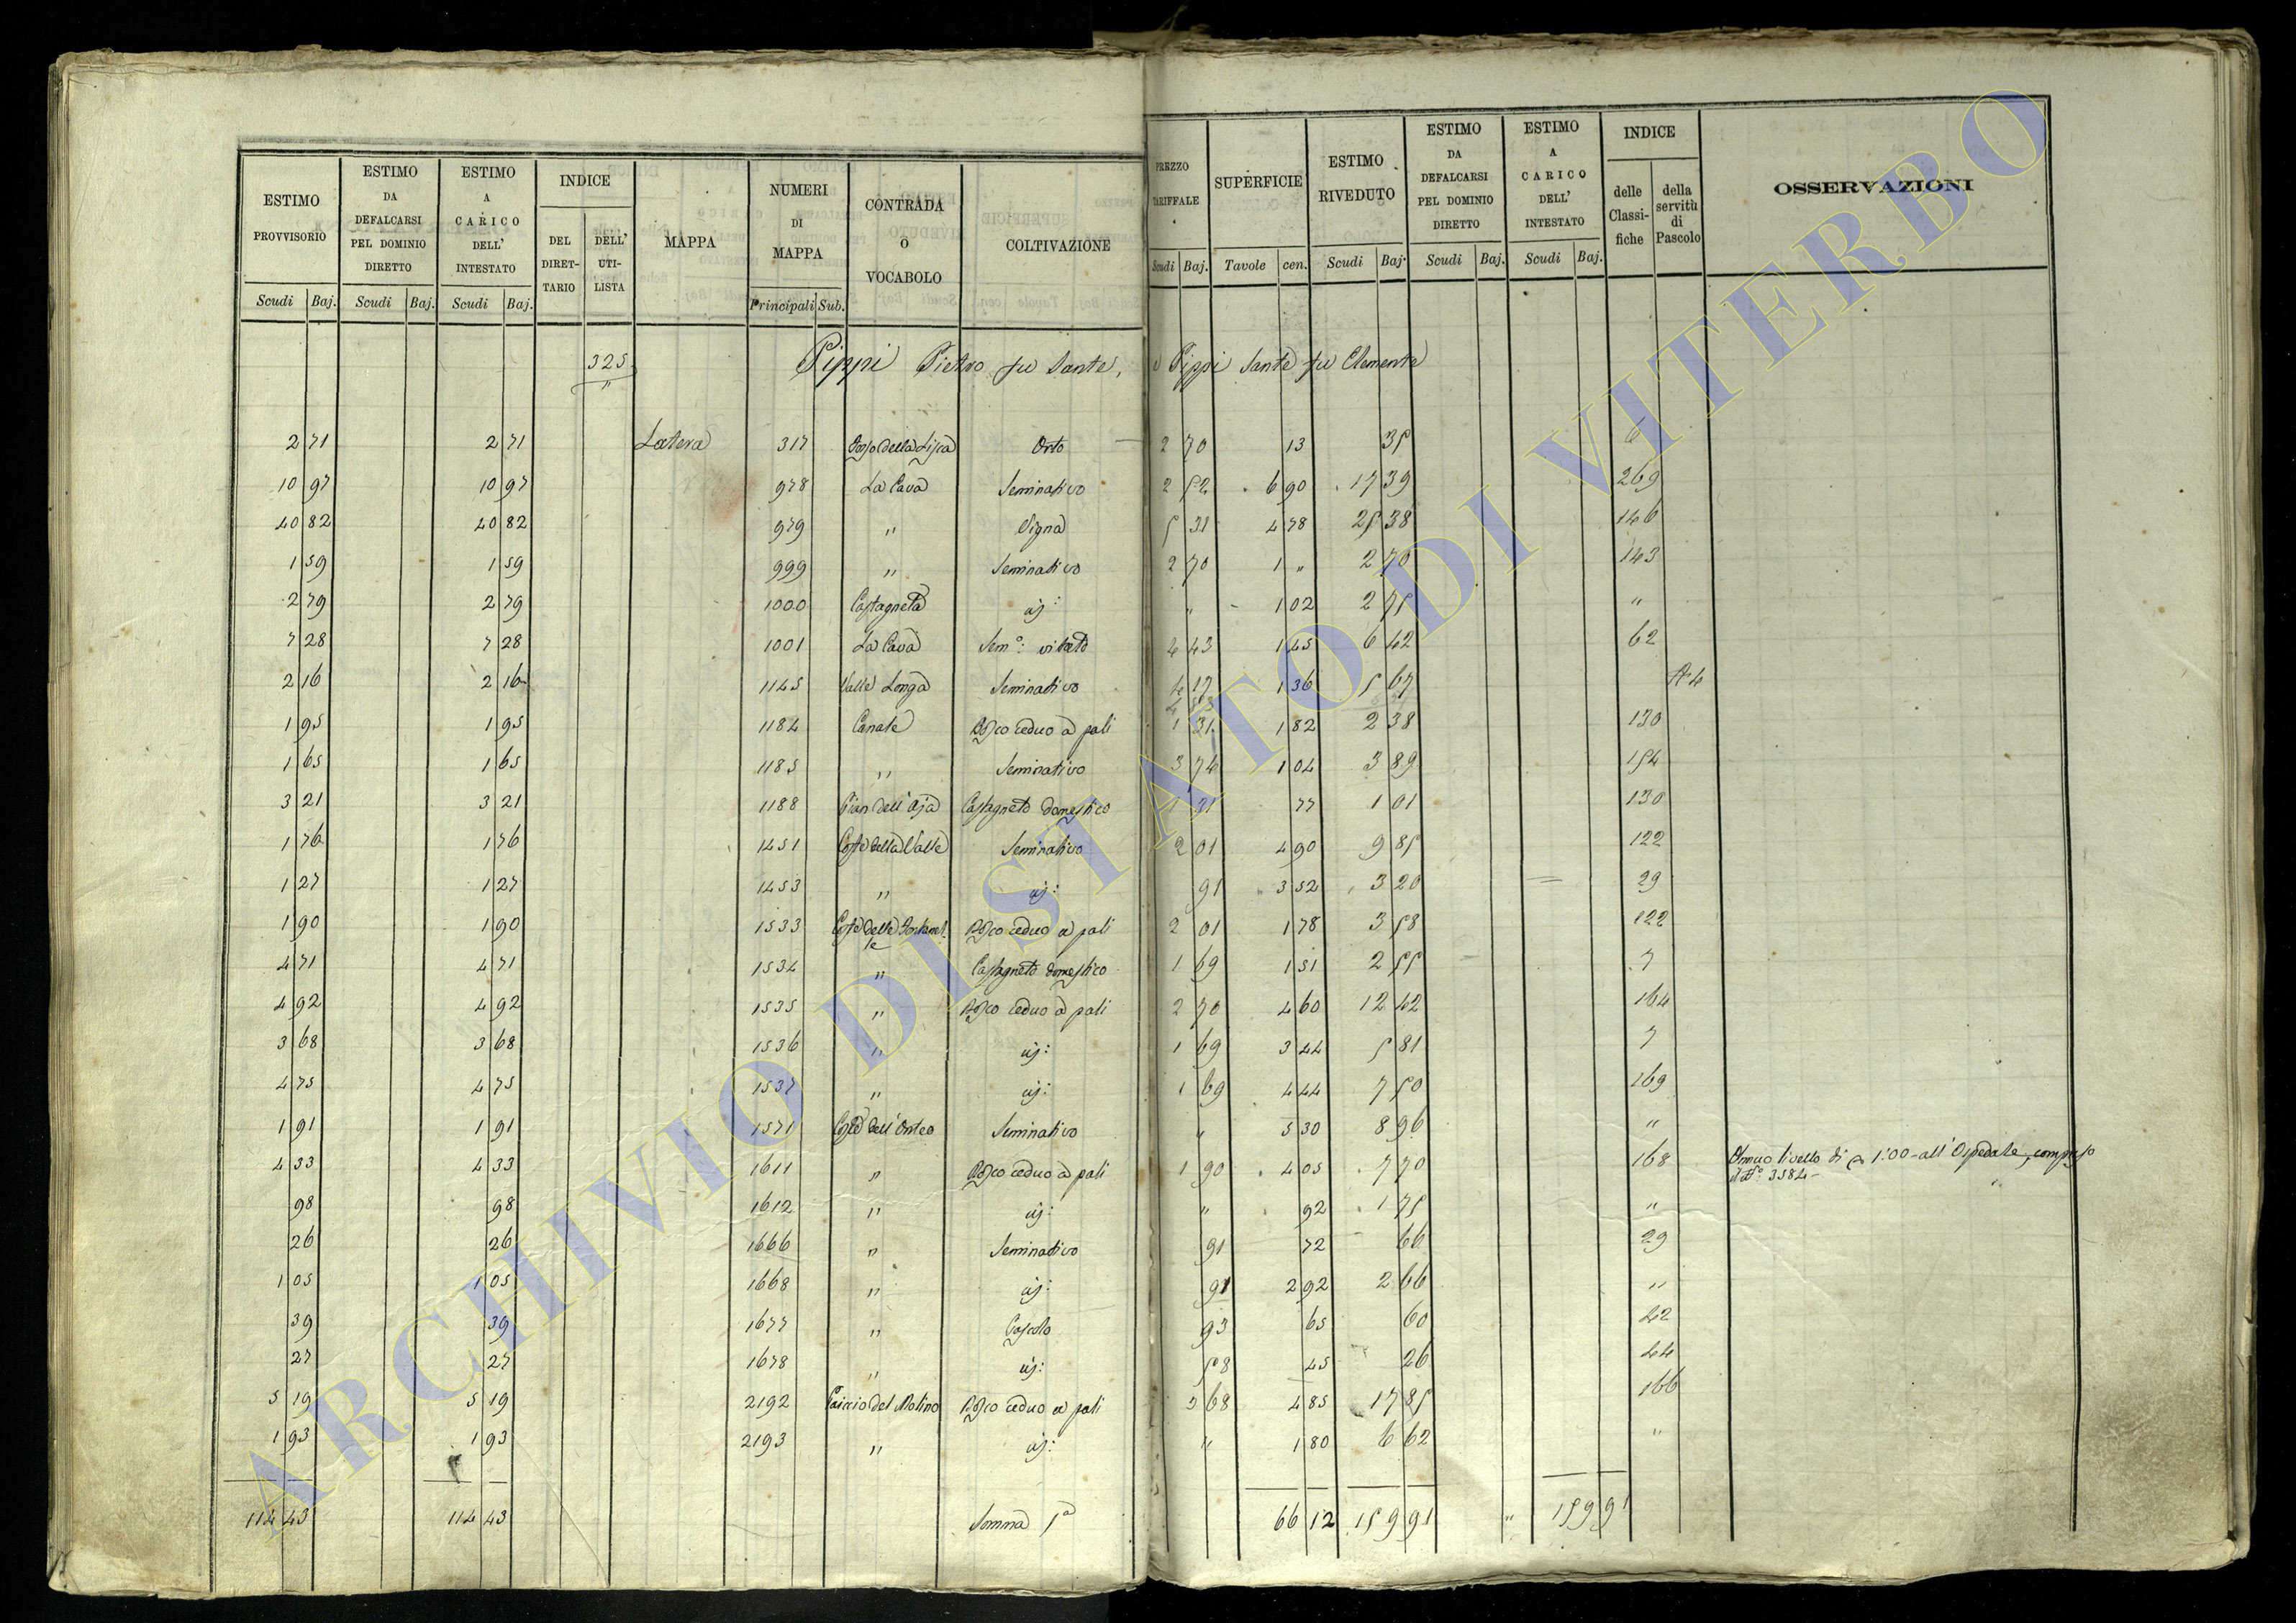 ESTIMO PROVVISORIO | ESTIMO DA DEFALCARSI PEL DOMINIO DIRETTO | ESTIMO A CARICO DELL' INTESTATO | INDICE | MAPPA | NUMERI DI MAPPA | CONTRADA O VOCABOLO | COLTIVAZIONE | PREZZO TARIFFALE | SUPERFICIE | ESTIMO RIVEDUTO | ESTIMO DA DEFALCARSI PEL DOMINIO DIRETTO | ESTIMO A CARICO DELL' INTESTATO | INDICE | OSSERVAZIONI
DEL DIRETTARIO | DELL' UTILISTA | delle Classifiche | della servitù di Pascolo
Scudi | Baj. | Scudi | Baj. | Scudi | Baj. | Principali | Sub. | Scudi | Baj. | Tavole | cen. | Scudi | Baj. | Scudi | Baj. | Scudi | Baj.
325 Pippi Pietro fu Sante, e Pippi Sante fu Clemente
"
2 71 | 2 71 | Latera | 317 | della | Orto | 2 70 | 13 | 35 | 6
10 97 | 10 97 | 978 | La Cava | Seminativo | 2 52 | 6 90 | 17 39 | 269
40 82 | 40 82 | 979 | " | Vigna | 5 31 | 4 78 | 25 38 | 146
1 59 | 1 59 | 999 | " | Seminativo | 2 70 | 1 " | 2 70 | 143
2 79 | 2 79 | 1000 | Castagneta | " | 1 02 | 2 75 | "
7 28 | 7 28 | 1001 | La Cava | Sem°: vitato | 4 43 | 1 45 | 6 42 | 62
2 16 | 2 16 | 1145 | Valle Longa | Seminativo | 4 17 | 1 36 | 5 67 | A 4
1 95 | 1 95 | 1184 | Canale | Bosco ceduo a pali | 1 31 | 1 82 | 2 38 | 130
1 65 | 1 65 | 1185 | " | Seminativo | 3 74 | 1 04 | 3 89 | 154
3 21 | 3 21 | 1188 | Pian dell'Aja | Castagneto domestico | 1 31 | 77 | 1 01 | 130
1 76 | 1 76 | 1451 | Coste della Valle | Seminativo | 2 01 | 4 90 | 9 85 | 122
1 27 | 1 27 | 1453 | " | 91 | 3 52 | 3 20 | 29
1 90 | 1 90 | 1533 | Coste delle | Bosco ceduo a pali | 2 01 | 1 78 | 3 58 | 122
4 71 | 4 71 | 1534 | " | Castagneto domestico | 1 69 | 1 51 | 2 55 | 7
4 92 | 4 92 | 1535 | " | Bosco ceduo a pali | 2 70 | 4 60 | 12 42 | 164
3 68 | 3 68 | 1536 | " | 1 69 | 3 44 | 5 81 | 7
4 75 | 4 75 | 1537 | " | 1 69 | 4 44 | 7 50 | 169
1 91 | 1 91 | 1571 | dell' | Seminativo | " | 5 30 | 8 96 | "
4 33 | 4 33 | 1611 | " | Bosco ceduo a pali | 1 90 | 4 05 | 7 70 | 168 | Annuo livello di 1:00 all'Ospedale, compreso
il N°: 3584
98 | 98 | 1612 | " | " | 92 | 1 75 | "
26 | 26 | 1666 | " | Seminativo | 91 | 72 | 66 | 29
1 05 | 1 05 | 1668 | " | 91 | 2 92 | 2 66 | "
39 | 39 | 1677 | " | Pascolo | 93 | 65 | 60 | 42
27 | 27 | 1678 | " | 58 | 45 | 26 | 44
5 19 | 5 19 | 2192 | del Molino | Bosco ceduo a pali | 3 68 | 4 85 | 17 85 | 166
1 93 | 1 93 | 2193 | " | " | 1 80 | 6 62 | "
114 43 | 114 43 | Somma | 66 12 | 159 91 | " | 159 91
ARCHIVIO DI STATO DI VITERBO